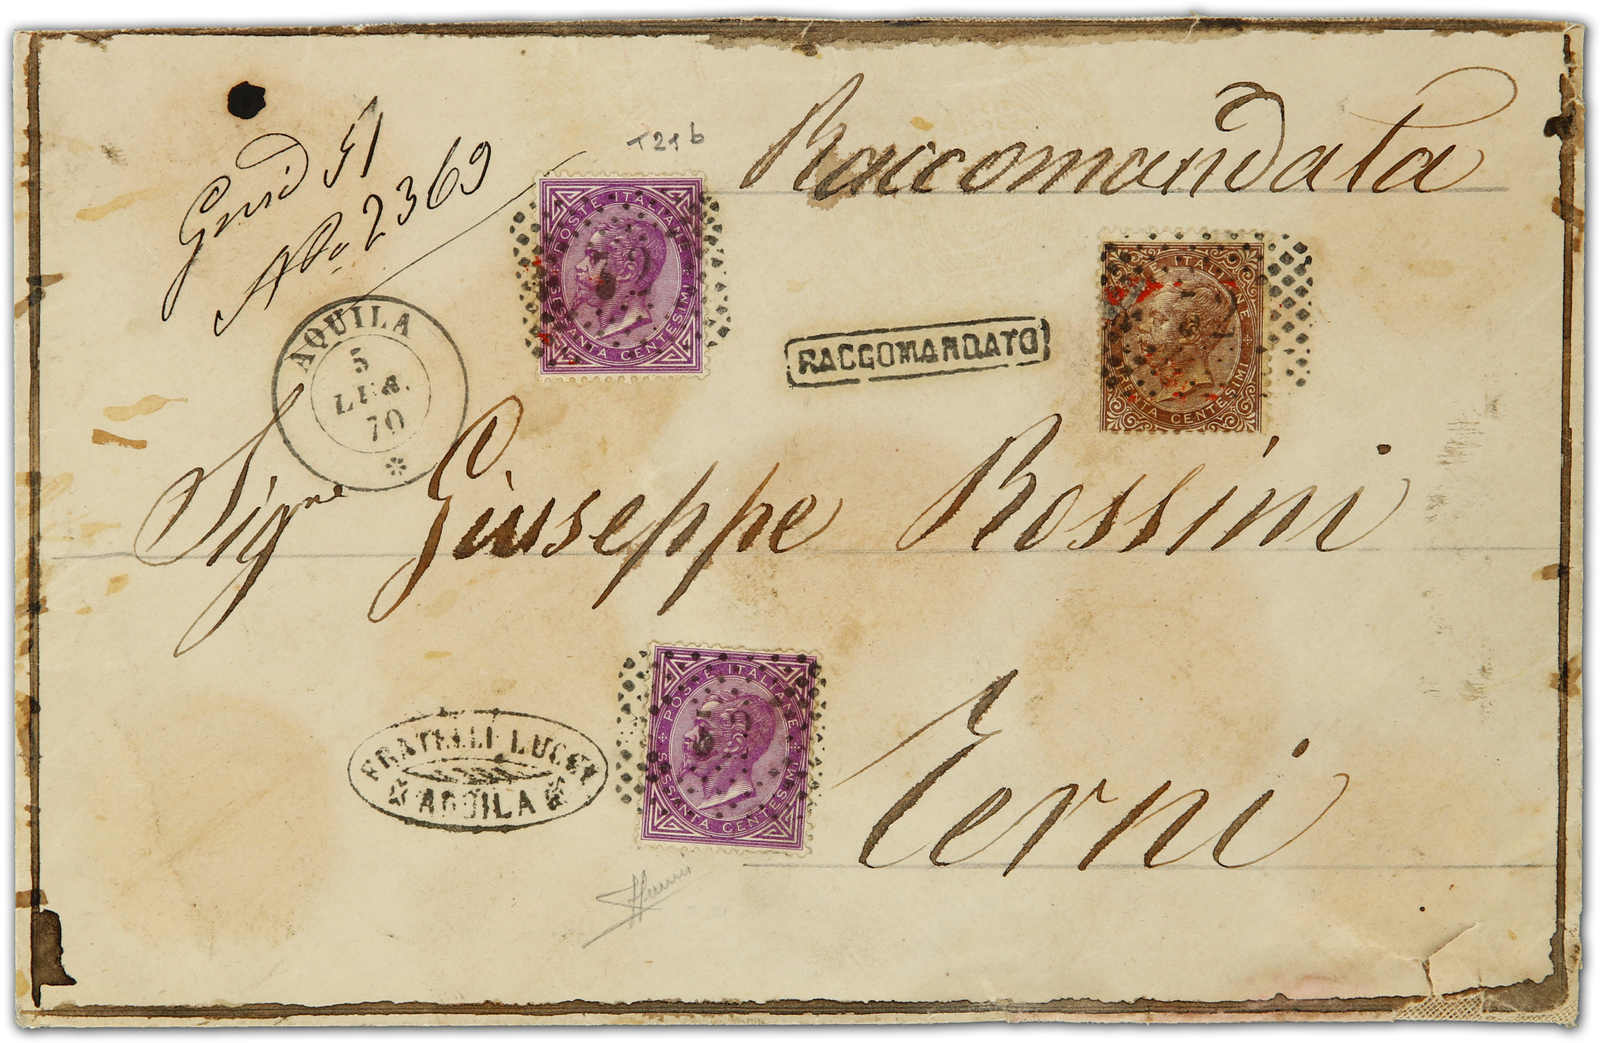 Raccomandata
Grid 51
No 2369
T21b
AQUILA
5
LUG.
70
POSTE ITALIANE
SESSANTA CENTESIMI
RACCOMANDATO
POSTE ITALIANE
TRENTA CENTESIMI
Sigre Giuseppe Rossini
POSTE ITALIANE
SESSANTA CENTESIMI
FRATELLI LUCCI
AQUILA
Terni